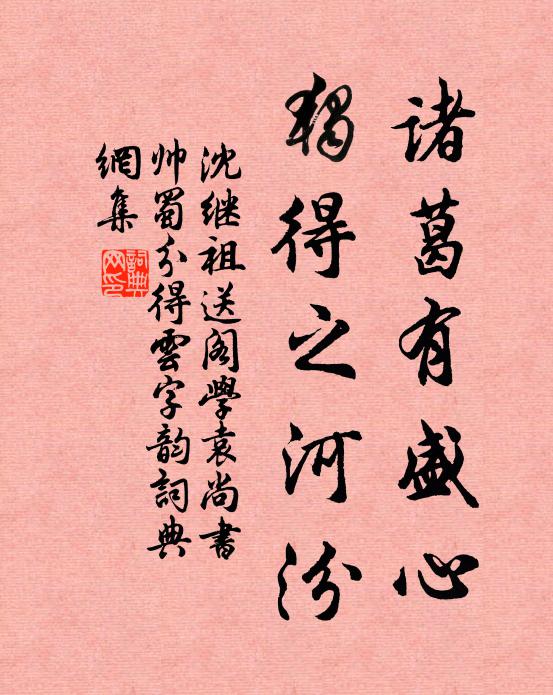 諸葛有盛心
獨得之河汾
沈继祖送阁學袁尚書
帅蜀分得雲字韵詞典
網集
詞典網印